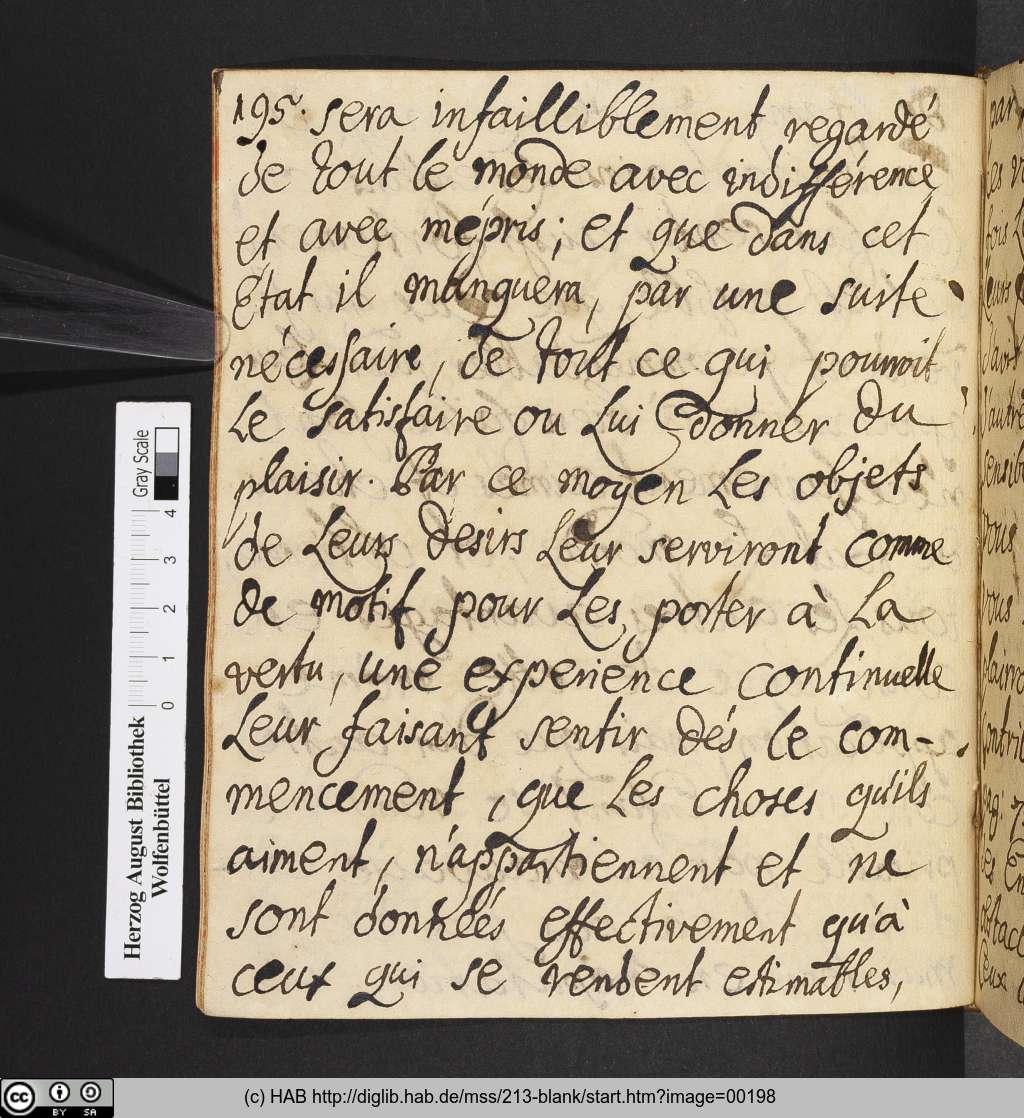 195. sera infailliblement regardé
de tout le monde avec indifférence
et avec mépris; et que dans cet
état il manquera, par une suite
nécessaire, de tout ce qui pourroit
Le satisfaire ou Lui donner du
plaisir. Par ce moyen Les objets
de Leurs désirs Leur serviront comme
de motif pour Les porter à La
vertu, une experience continuelle
Leur faisant sentir dés le com-
mencement, que Les choses qu'ils
aiment, n'appartiennent et ne
sont données effectivement qu'à
ceux qui se rendent estimables,
par
Gray Scale
4
3
2
1
0
Herzog August Bibliothek
Wolfenbüttel
CC BY SA
(c) HAB http://diglib.hab.de/mss/213-blank/start.htm?image=00198